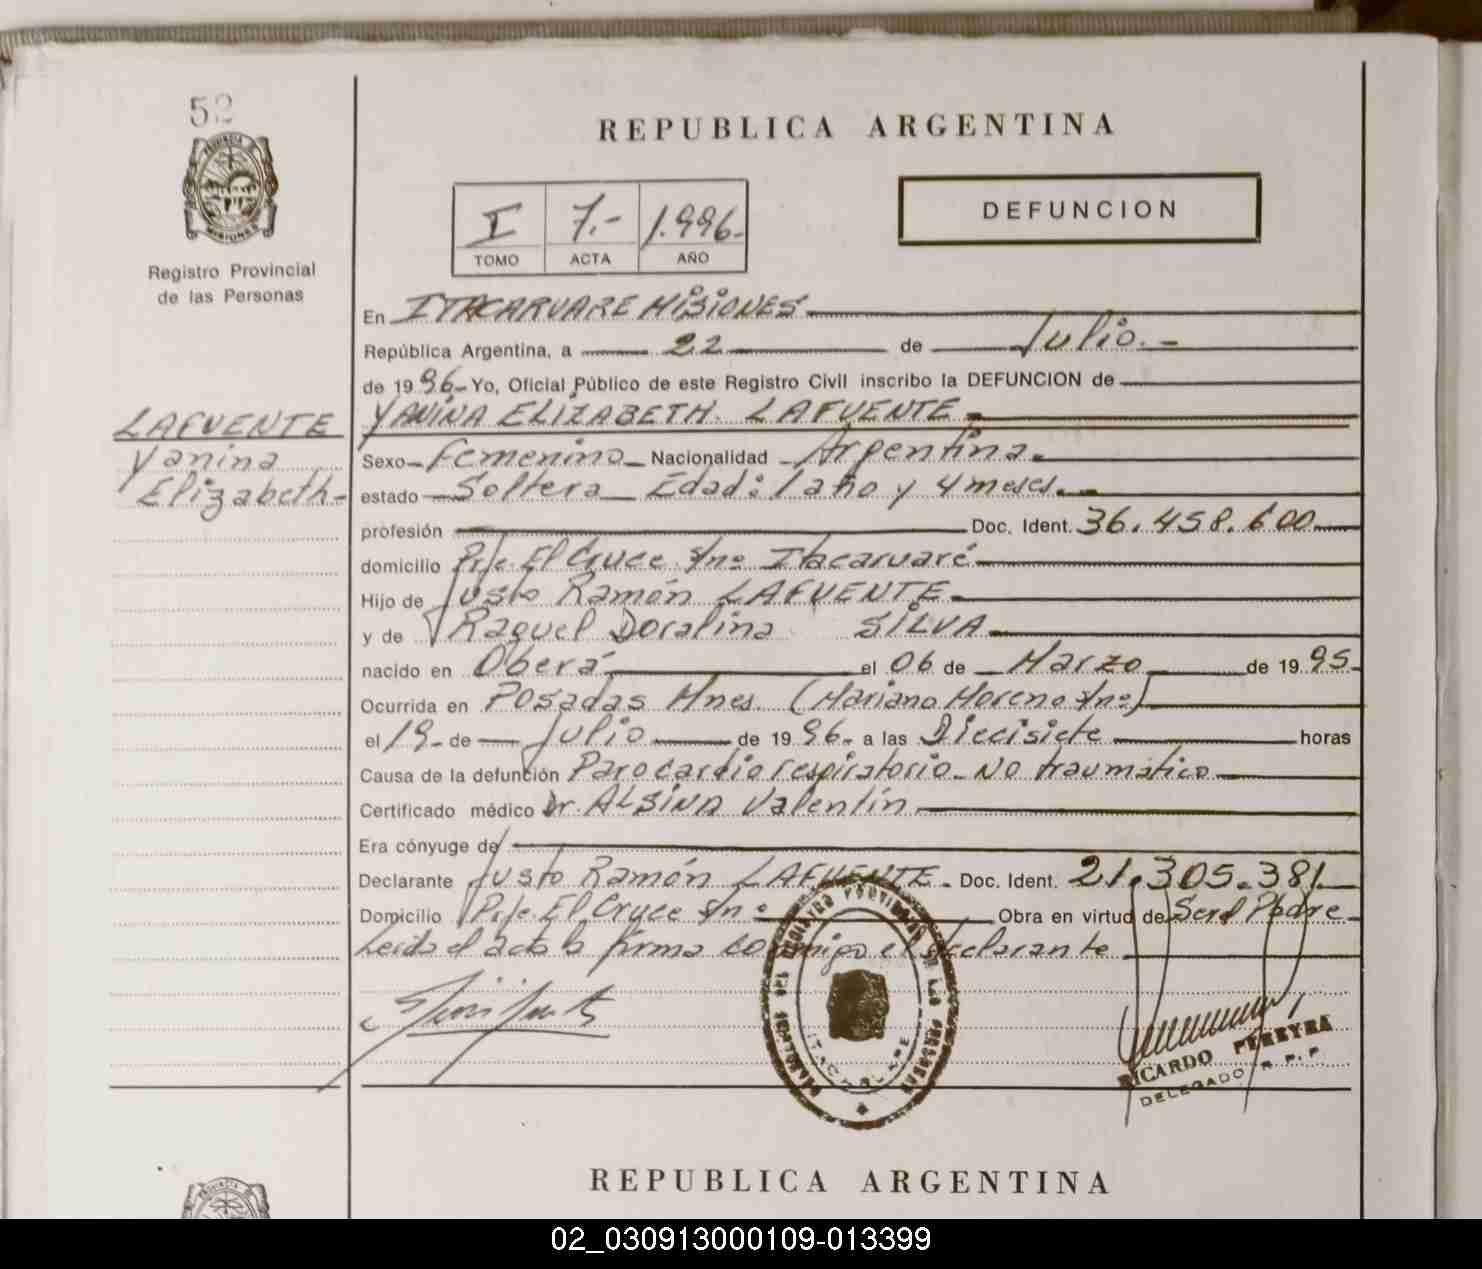 52
PROVINCIA D
MISIONES
Registro Provincial
de las Personas
REPUBLICA ARGENTINA
I 7.- 1.996.-
TOMO ACTA AÑO
DEFUNCION
En ITACARUARE MISIONES
República Argentina, a 22 de Julio.-
de 1996- Yo, Oficial Público de este Registro Civil inscribo la DEFUNCION de
YANINA ELIZABETH. LAFUENTE
LAFUENTE
Yanina
Elizabeth-
Sexo Femenino Nacionalidad Argentina.
estado Soltera Edad: 1 año y 4 meses.-
profesión Doc. Ident. 36.458.600
domicilio Pje. El Cruce s/nº Itacaruaré
Hijo de Justo Ramón LAFUENTE
y de Raquel Doralina SILVA
nacido en Oberá el 06 de Marzo de 1995-
Ocurrida en Posadas Mnes. (Mariano Moreno s/nº)
el 19- de Julio de 1996- a las Diecisiete horas
Causa de la defunción Parocardiorespiratorio- No traumático
Certificado médico Dr. ALSINA Valentín
Era cónyuge de
Declarante Justo Ramón LAFUENTE Doc. Ident. 21.305.381
Domicilio Pje. El Cruce s/nº Obra en virtud de Ser el Padre
Leida el acta la firma conmigo el declarante
ITACARUARE
RICARDO PEREYRA
DELEGADO R. P. P.
REPUBLICA ARGENTINA
02_030913000109-013399